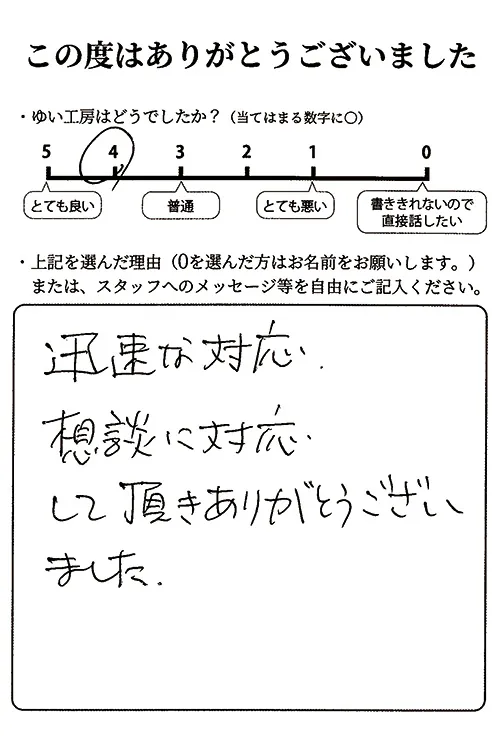 この度はありがとうございました
・ゆい工房はどうでしたか？（当てはまる数字に〇）
5 4 3 2 1 0
とても良い 普通 とても悪い 書ききれないので
直接話したい
・上記を選んだ理由（0を選んだ方はお名前をお願いします。）
または、スタッフへのメッセージ等を自由にご記入ください。
迅速な対応.
想談に対応.
して頂きありがとうござい
ました.